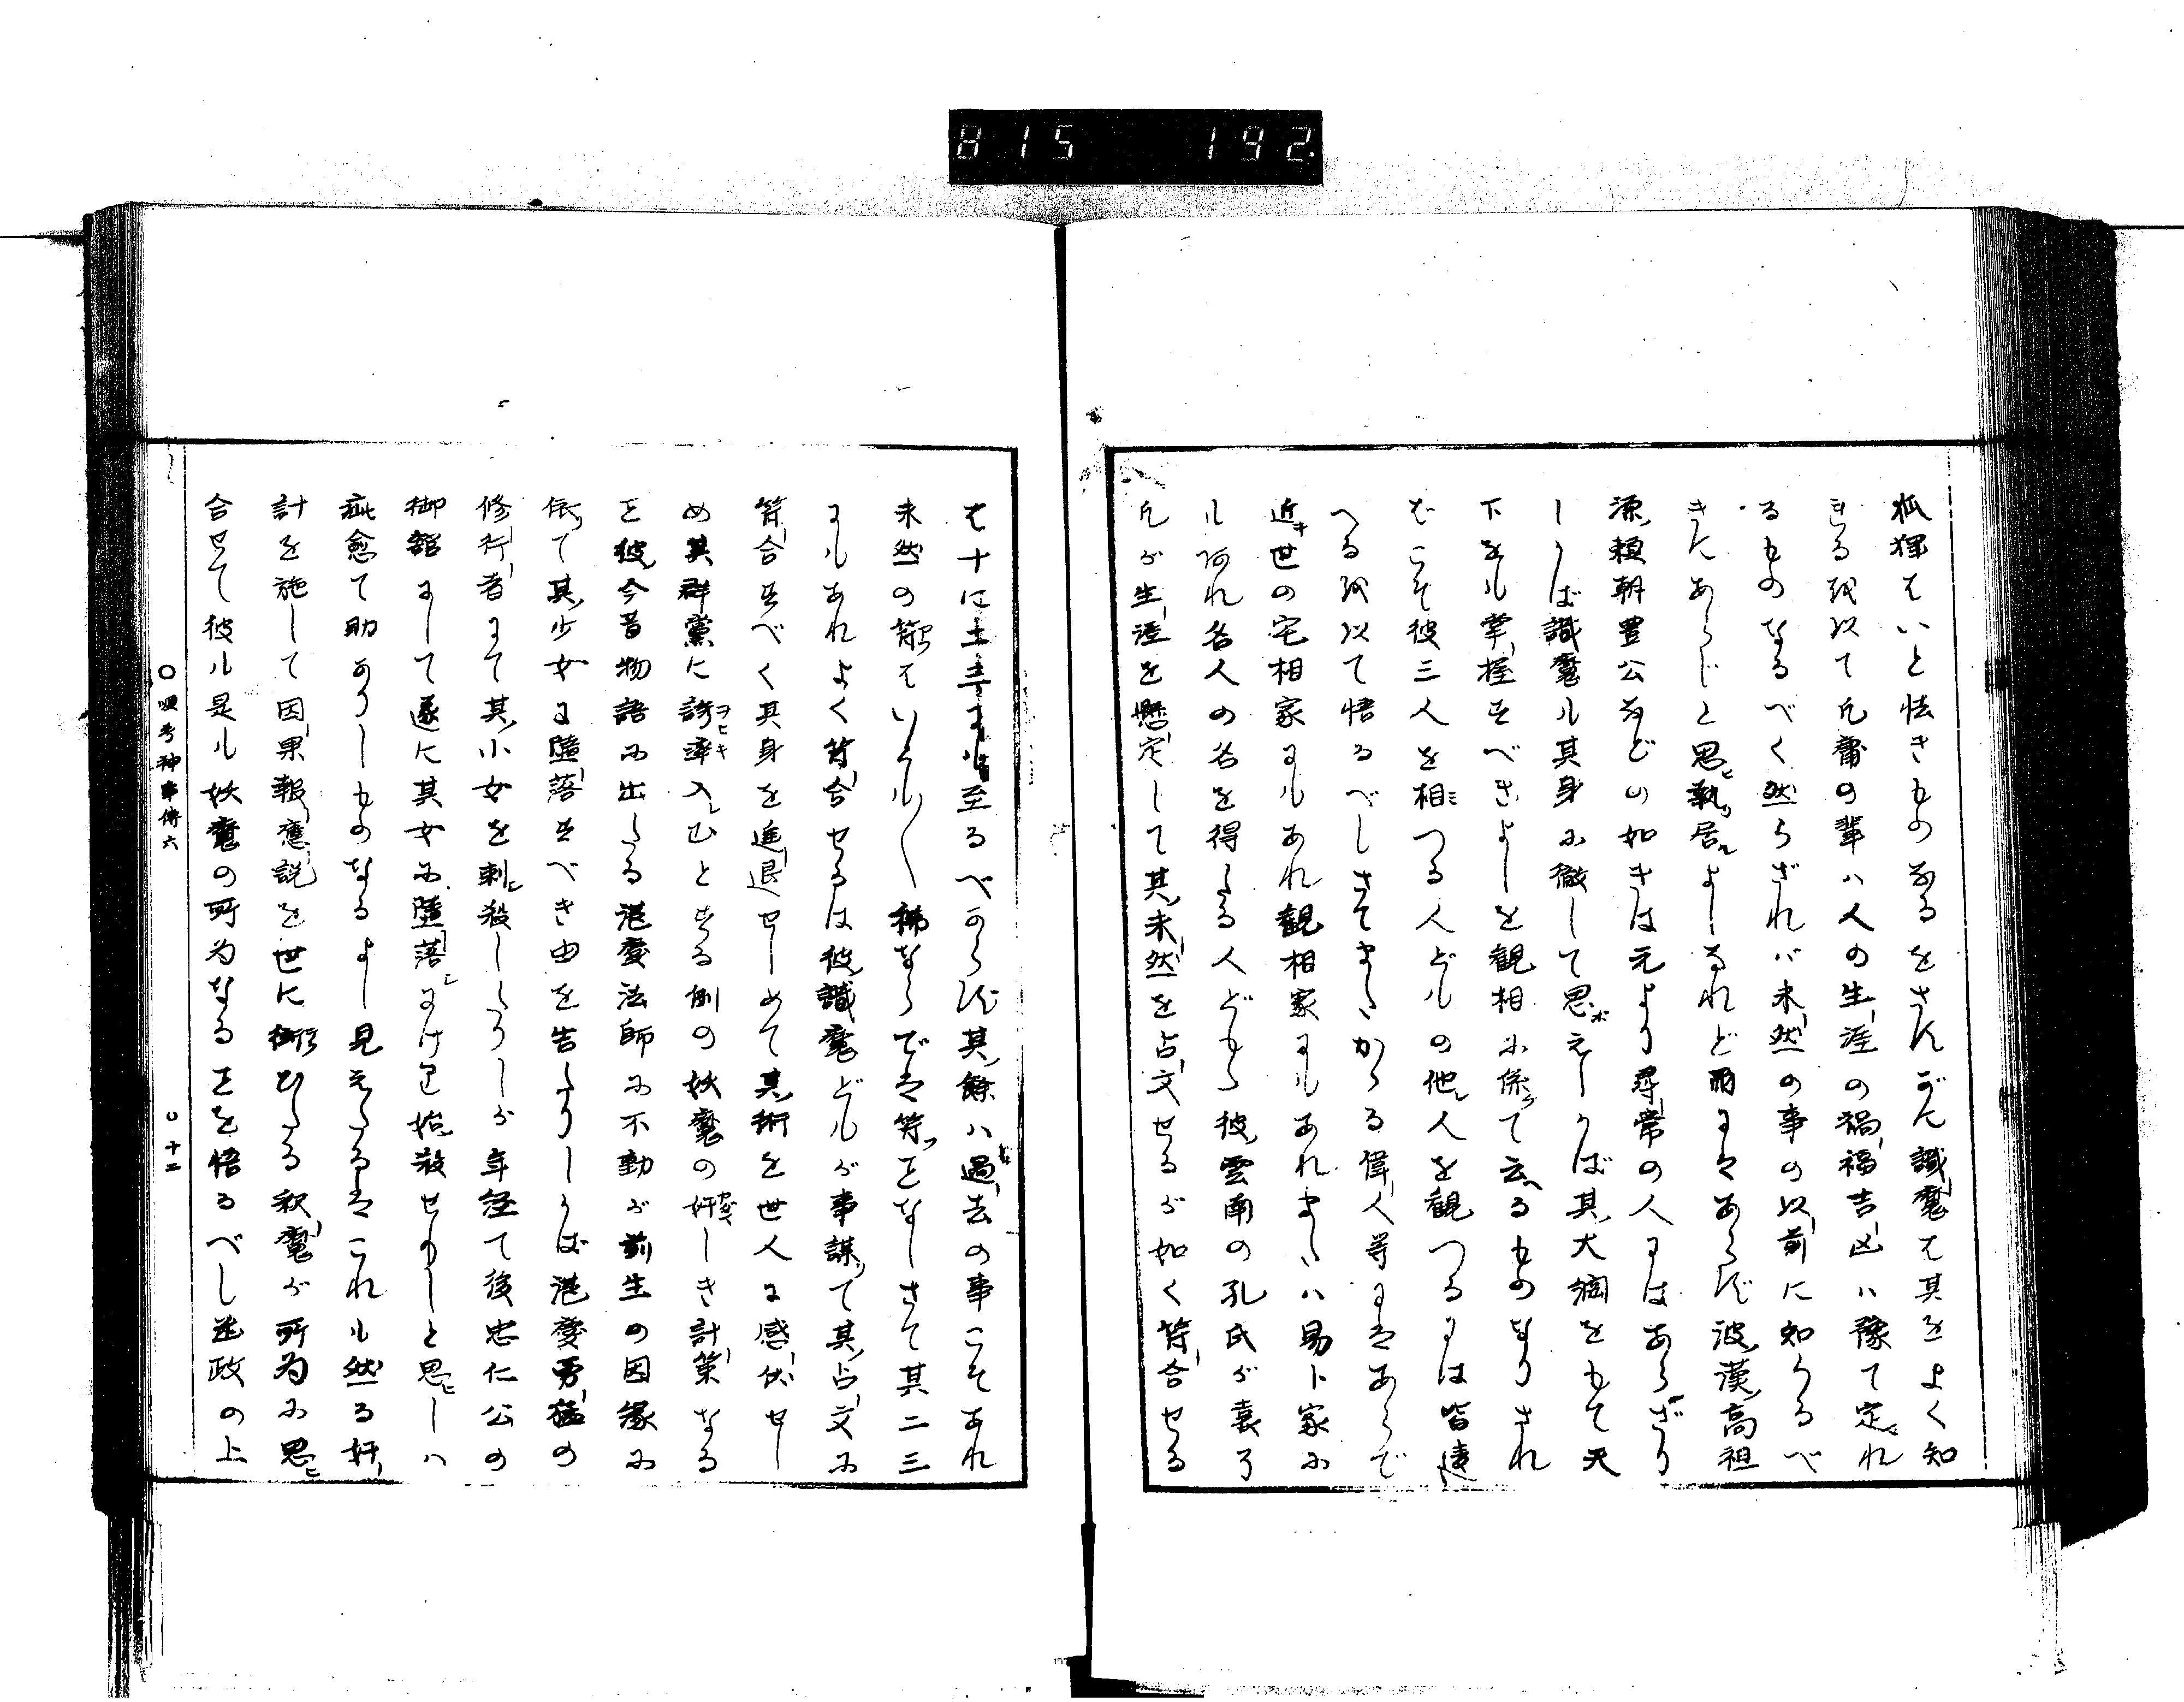 815 192.
狐狸はいと怯きものなるをさへかく識魔は其をよく知
きる以て凡庸の輩ハ人の生涯の禍福吉凶ハ豫て定れ
るものなるべく然らざれバ未然の事の以前に知らるべ
きにあらじと思執居よしなれど爾にはあらず彼漢高祖
源頼朝豊公などの如きは元より尋常の人にはあらざり
しかば識魔ル其身に徹して思えしかば其大綱をもて天
下をル掌握すべきよしを観相に係て云るものなりされ
ばこそ彼三人を相つる人どルの他人を観つるには皆違
へる以て悟るべしさてまたかゝる偉人等にはあらで
近世の宅相家にルあれ観相家にルあれまたハ易卜家に
ル何れ名人の名を得たる人どもゝ彼雲南の孔氏が袁了
凡が生涯を懸定して其未然を占文せるが如く符合せる
は十に至るべからず其餘ハ過去の事こそあれ
未然の符はいと／＼稀ならでは符をなしさて其二三
にルあれよく符合せるは彼識魔どルが事謀て其占文に
符合すべく其身を進退せしめて其術を世人に感伏せし
め其群黨に誘率入むとする例の妖魔の奸しき計策なる
を彼今昔物語に出たる湛慶法師に不動が前生の因縁に
依て其少女に墮落すべき由を告たりしかば湛慶勇猛の
修行者にて其小女を刺殺したりしが年経て後忠仁公の
御館にして遂に其女に墮落にけり始殺せりしと思しハ
疵愈て助かりしものなるよし見えたるはこれル然る奸
計を施して因果報應説を世に衒ひたる釈魔が所為に思
合せて彼ル是ル妖魔の所為なるを悟るべし並政の上
神事傳六
十二